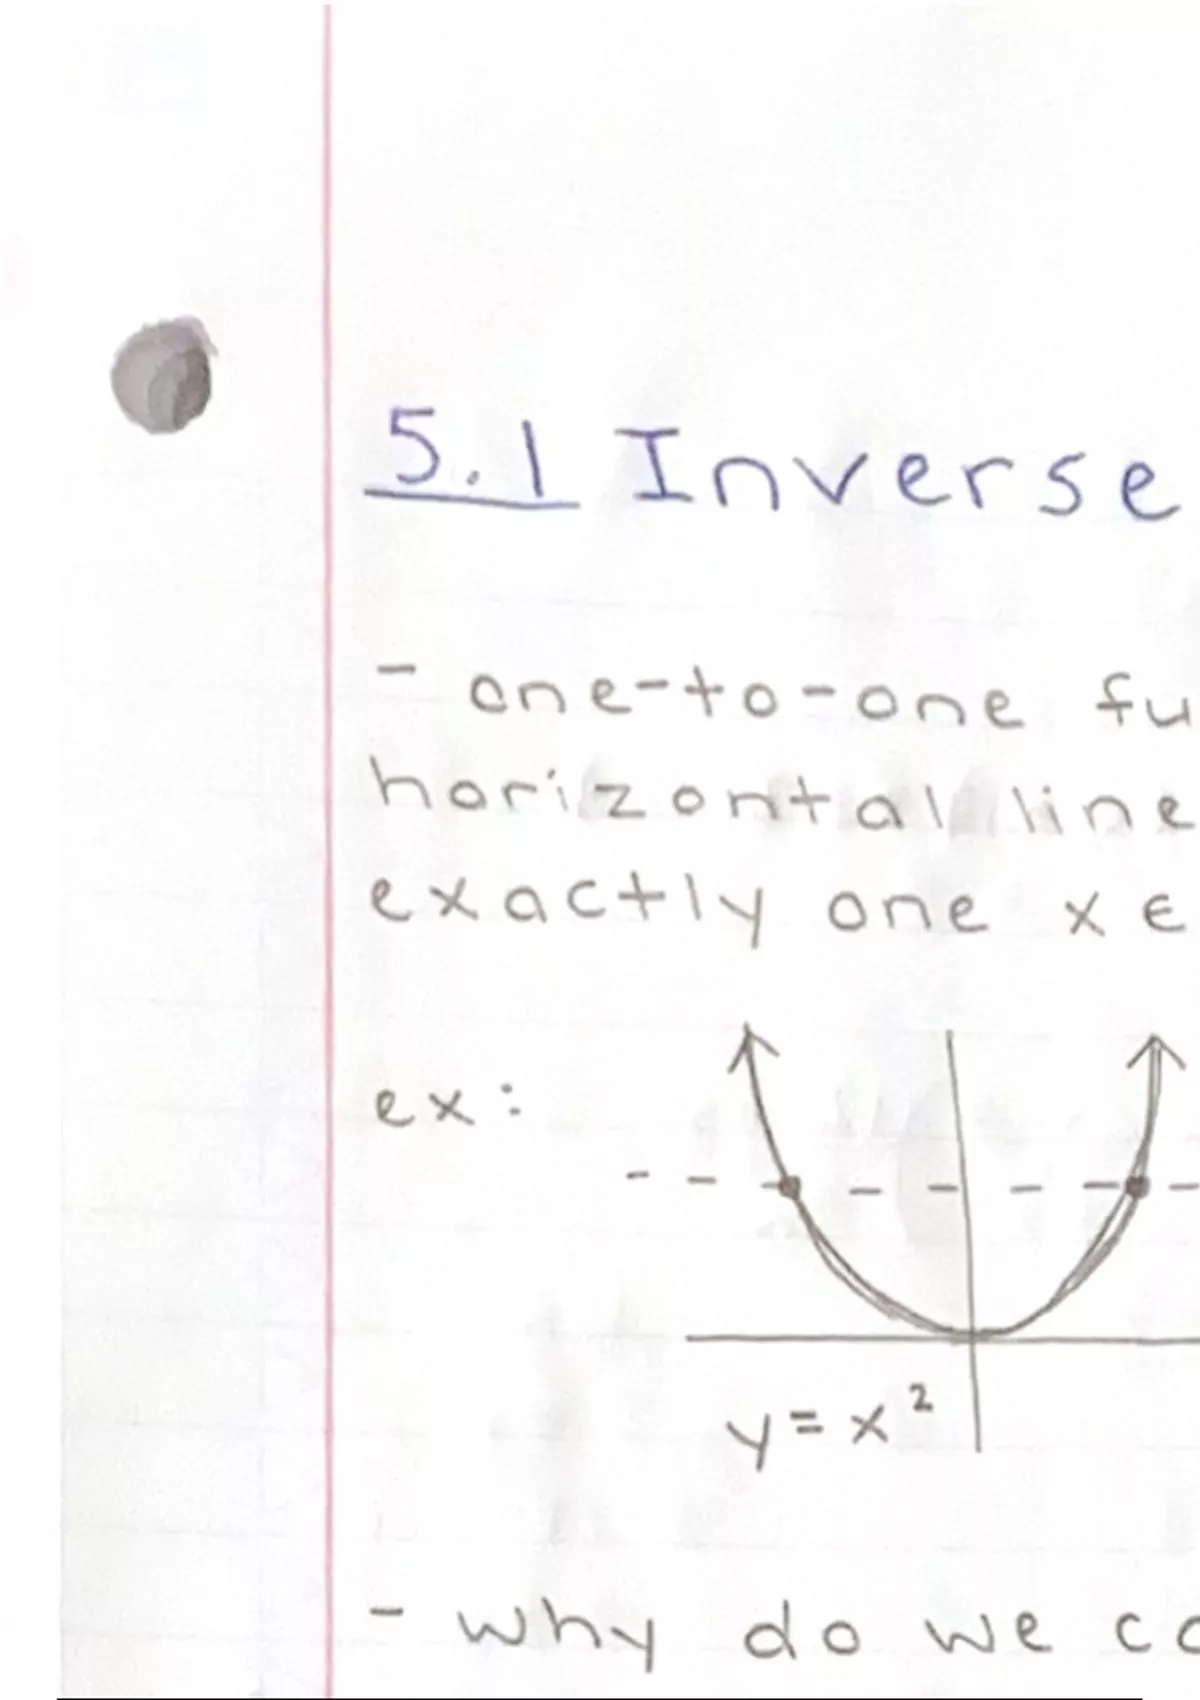 5.1 Inverse
- one-to-one fu
horizontal line
exactly one x ∈
ex:
y = x²
- why do we co